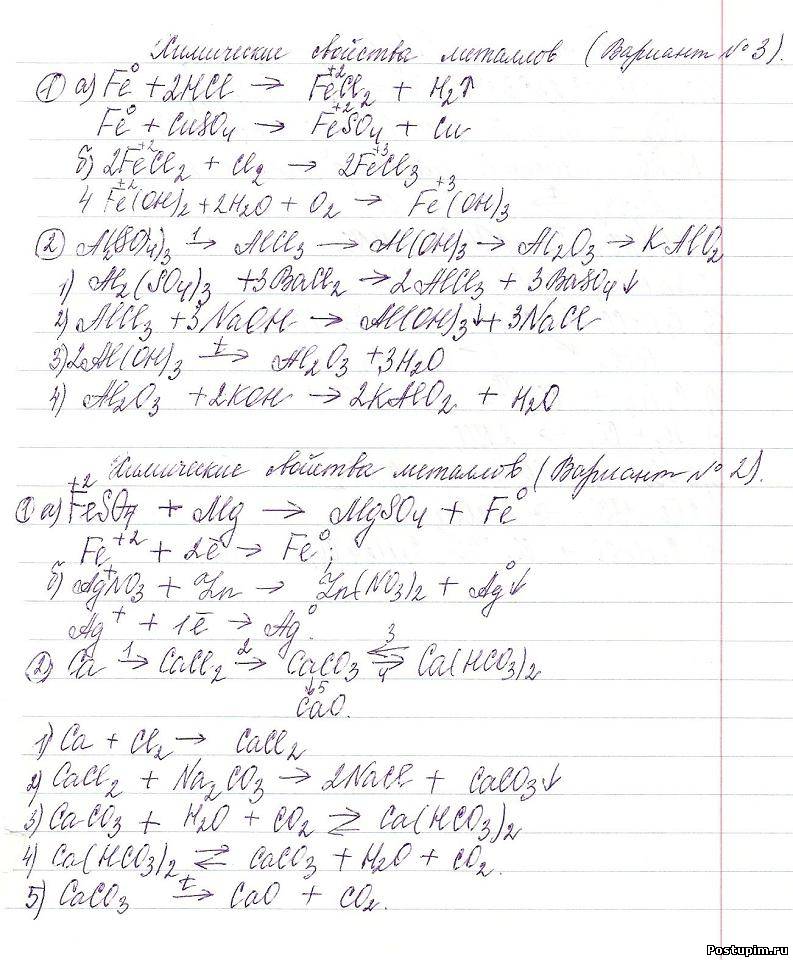 Химические свойства металлов (Вариант № 3).
① а) Fe⁰ + 2HCl → Fe⁺²Cl₂ + H₂↑
Fe⁰ + CuSO₄ → Fe⁺²SO₄ + Cu
б) 2Fe⁺²Cl₂ + Cl₂ → 2Fe⁺³Cl₃
4 Fe⁺²(OH)₂ + 2H₂O + O₂ → Fe⁺³(OH)₃
② Al₂(SO₄)₃ →¹ AlCl₃ → Al(OH)₃ → Al₂O₃ → KAlO₂
1) Al₂(SO₄)₃ + 3BaCl₂ → 2AlCl₃ + 3BaSO₄↓
2) AlCl₃ + 3NaOH → Al(OH)₃↓ + 3NaCl
3) 2Al(OH)₃ →ᵗ Al₂O₃ + 3H₂O
4) Al₂O₃ + 2KOH → 2KAlO₂ + H₂O
Химические свойства металлов (Вариант № 2).
① а) Fe⁺²SO₄ + Mg → MgSO₄ + Fe⁰
Fe⁺² + 2ē → Fe⁰;
б) Ag⁺NO₃ + Zn → Zn(NO₃)₂ + Ag⁰↓
Ag⁺ + 1ē → Ag⁰.
② Ca →¹ CaCl₂ →² CaCO₃ ⇄ 3 4 Ca(HCO₃)₂
↓5
CaO.
1) Ca + Cl₂ → CaCl₂
2) CaCl₂ + Na₂CO₃ → 2NaCl + CaCO₃↓
3) CaCO₃ + H₂O + CO₂ ⇄ Ca(HCO₃)₂
4) Ca(HCO₃)₂ ⇄ CaCO₃ + H₂O + CO₂.
5) CaCO₃ →ᵗ CaO + CO₂.
Postupim.ru